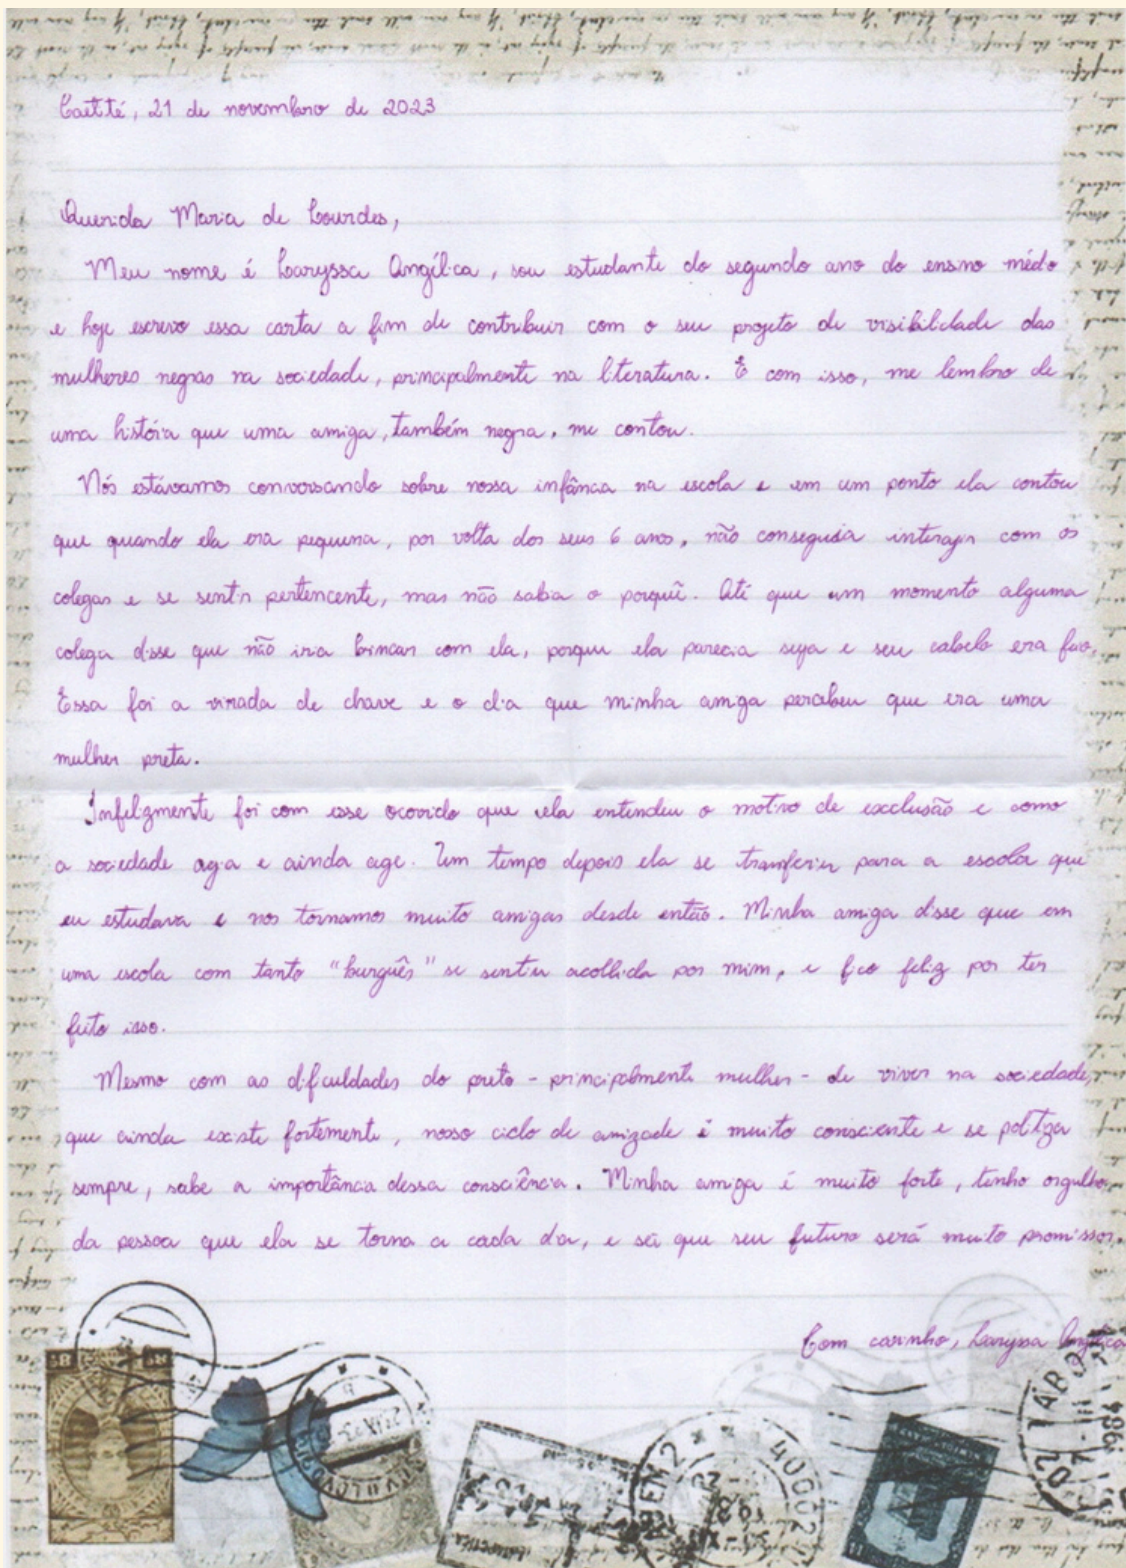 Caetité, 21 de novembro de 2023
Querida Maria de Lourdes,
Meu nome é Laryssa Angélica, sou estudante do segundo ano do ensino médio
e hoje escrevo essa carta a fim de contribuir com o seu projeto de visibilidade das
mulheres negras na sociedade, principalmente na literatura. E com isso, me lembro de
uma história que uma amiga, também negra, me contou.
Nós estávamos conversando sobre nossa infância na escola e em um ponto ela contou
que quando ela era pequena, por volta dos seus 6 anos, não conseguia interagir com os
colegas e se sentir pertencente, mas não sabia o porquê. Até que um momento alguma
colega disse que não iria brincar com ela, porque ela parecia suja e seu cabelo era feio.
Essa foi a virada de chave e o dia que minha amiga percebeu que era uma
mulher preta.
Infelizmente foi com esse ocorrido que ela entendeu o motivo de exclusão e como
a sociedade agia e ainda age. Um tempo depois ela se transferiu para a escola que
eu estudava e nos tornamos muito amigas desde então. Minha amiga disse que em
uma escola com tanto "burguês" se sentiu acolhida por mim, e fico feliz por ter
feito isso.
Mesmo com as dificuldades do preto - principalmente mulher - de viver na sociedade,
que ainda existe fortemente, nosso ciclo de amizade é muito consciente e se politiza
sempre, sabe a importância dessa consciência. Minha amiga é muito forte, tenho orgulho
da pessoa que ela se torna a cada dia, e sei que seu futuro será muito promissor.
Com carinho, Laryssa Angélica